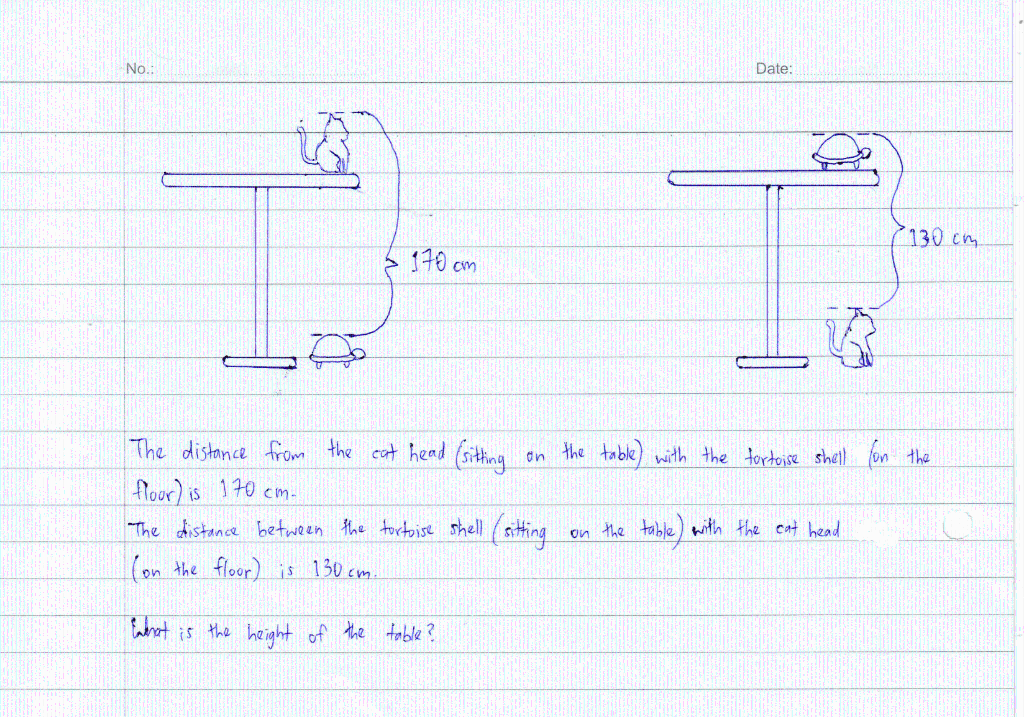 No.: Date:
170 cm
130 cm
The distance from the cat head (sitting on the table) with the tortoise shell (on the
floor) is 170 cm.
The distance between the tortoise shell (sitting on the table) with the cat head
(on the floor) is 130 cm.
What is the height of the table?